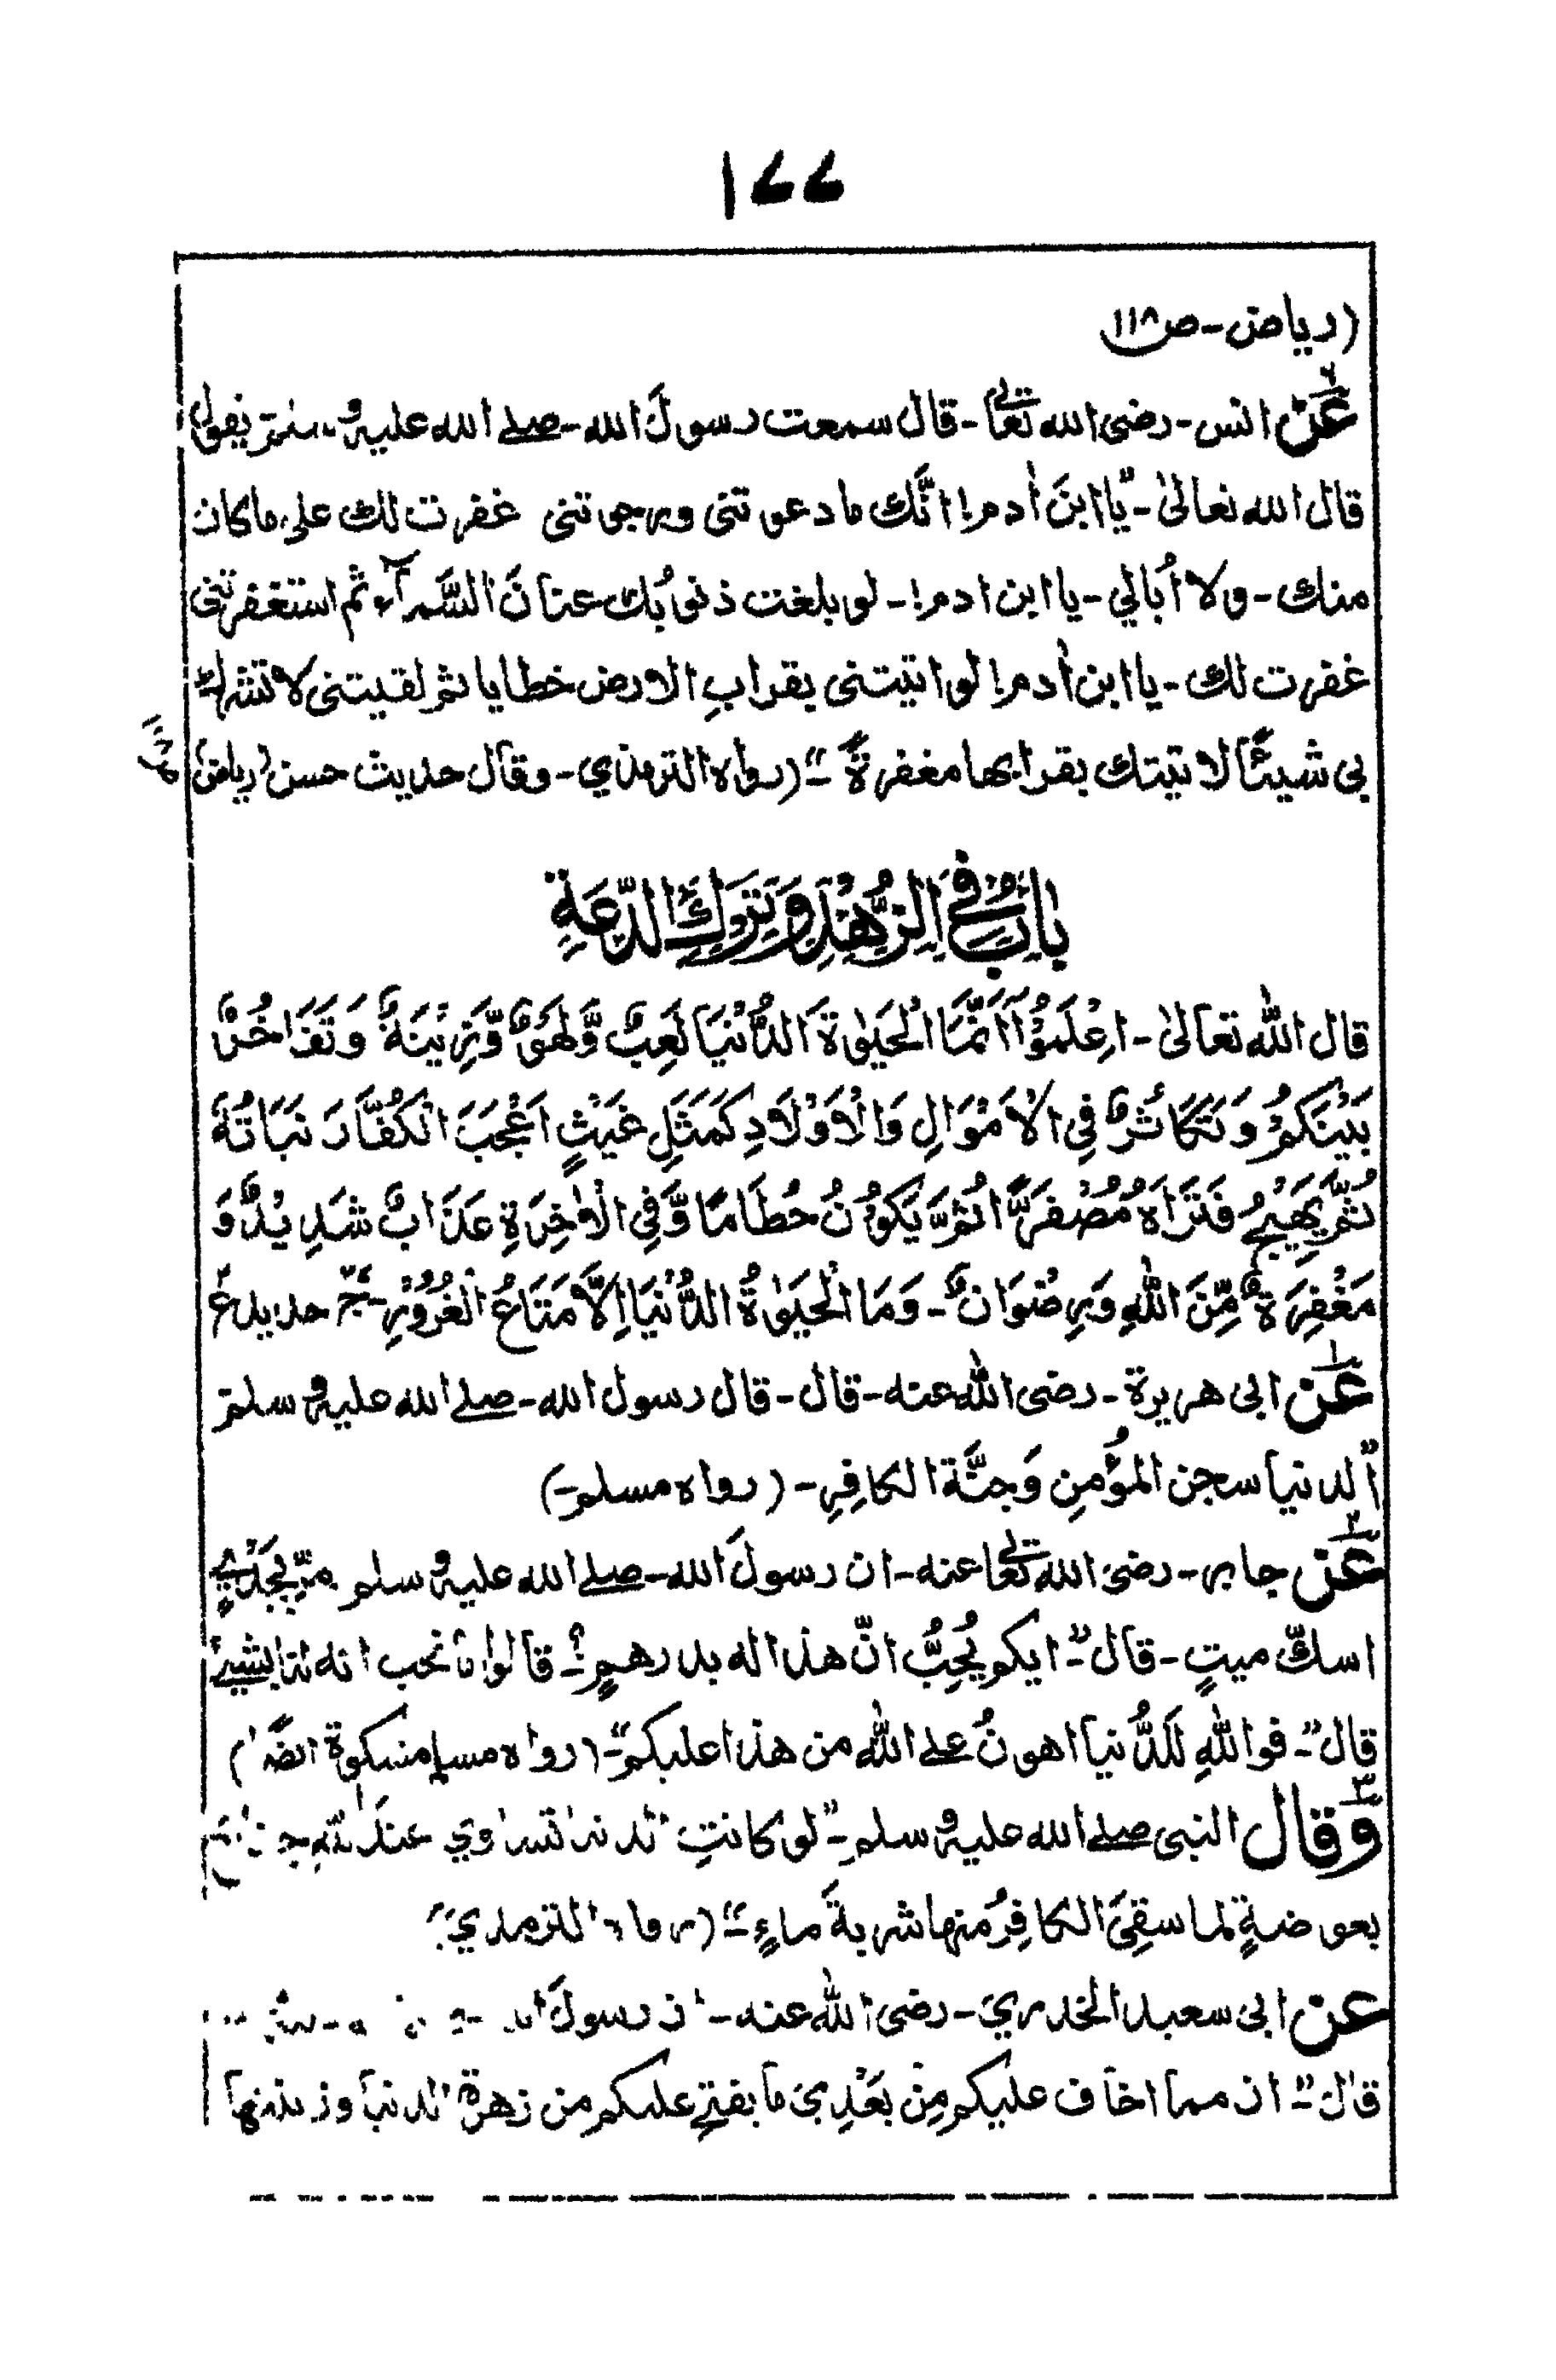 ۱۷۷
(ریاض-ص۱۱۸
عَنْ انس-رضی الله تعالٰی-قال سمعت رسولَ الله-صلے الله علیہ وسلم یقول
قال الله تعالیٰ-"یا ابنَ اٰدم! انَّک ما دعوتنی ورجوتنی غفرت لک علی ما کان
منک-ولا أبالي-یا ابن ادم!-لو بلغت ذنوبُک عنانَ السَّمآء ثم استغفرتنی
غفرت لک-یا ابن اٰدم! لو اتیتنی بقرابِ الارض خطایا ثم لقیتنی لا تشرک
بی شیئًا لاتیتک بقرابها مغفرةً"-(رواه الترمذي-وقال حدیث حسن (ریاض
بابٌ فِی الزُّهْدِ وَتَرْكِ الدِّعَةِ
قال اللّٰه تعالیٰ-اِعْلَمُوْٓا اَنَّمَا الْحَیٰوةُ الدُّنْیَا لَعِبٌ وَّلَهْوٌ وَّزِیْنَةٌ وَتَفَاخُرٌ
بَیْنَکُمْ وَتَکَاثُرٌ فِی الْاَمْوَالِ وَالْاَوْلَادِ کَمَثَلِ غَیْثٍ اَعْجَبَ الْکُفَّارَ نَبَاتُهٗ
ثُمَّ یَهِیْجُ فَتَرَاهُ مُصْفَرًّا ثُمَّ یَکُوْنُ حُطَامًا وَّفِی الْاٰخِرَةِ عَذَابٌ شَدِیْدٌ وَ
مَغْفِرَةٌ مِّنَ اللّٰهِ وَرِضْوَانٌ-وَمَا الْحَیٰوةُ الدُّنْیَا اِلَّا مَتَاعُ الْغُرُوْرِ- حدید ع
۱ عَن ابی هریرة-رضی اللّٰه عنه-قال-قال رسول الله-صلے الله علیہ وسلم
"الدنیا سجن المؤمنِ وَجنَّة الکافِرِ-(رواه مسلم-)
۲ عَن جابر-رضی الله تعالٰی عنه-ان رسولَ الله-صلے الله علیہ وسلم مرّ بِجَدْيٍ
اسکّ میتٍ-قال"-ایکم یُحِبُّ انّ هذا له بدرهمٍ؟-قالوا ما نحب انه لنا بشیئ
قال"-فواللّٰهِ لَلدُّنیا اهونُ علے اللّٰه من هذا علیکم"-(رواه مسلم مشکوة ایضًا)
۳ وَقال النبی صلے الله علیہ وسلم-"لو کانتِ الدنیا تساوي عند اللّٰه جناح
بعوضةٍ لما سقِیَ الکافِرُ منها شربةَ ماءٍ"-(رواه الترمذي)
عن ابی سعید الخدري-رضی اللّٰه عنه-ان رسولَ الله
قال"-ان مما اخاف علیکم مِنْ بَعْدِیْ ما یفتح علیکم من زهرة الدنیا وزینتها